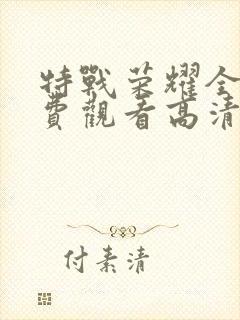 特戰荣耀全
費觀看高清
付素清